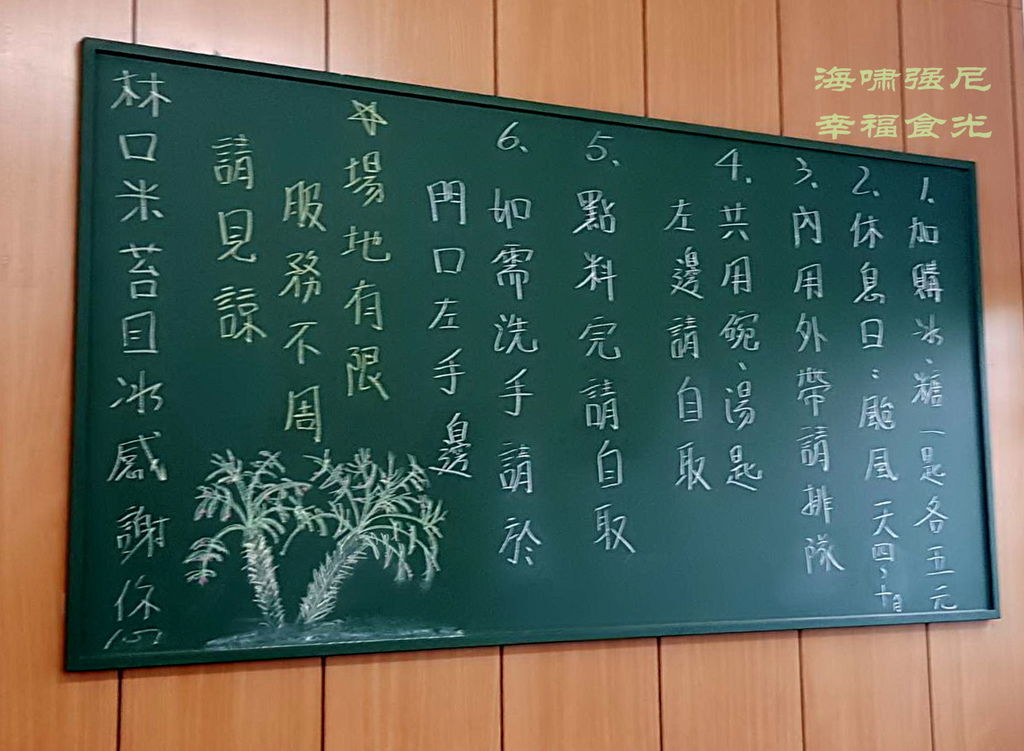 海嘯强尼
幸福食光
1.加購冰、糖一匙各五元
2.休息日：颱風天
3.內用外帶請排隊
4.共用碗、湯匙
左邊請自取
5.點料完請自取
6.如需洗手請於
門口左手邊
☆場地有限
服務不周
請見諒
林口米苔目冰感謝您